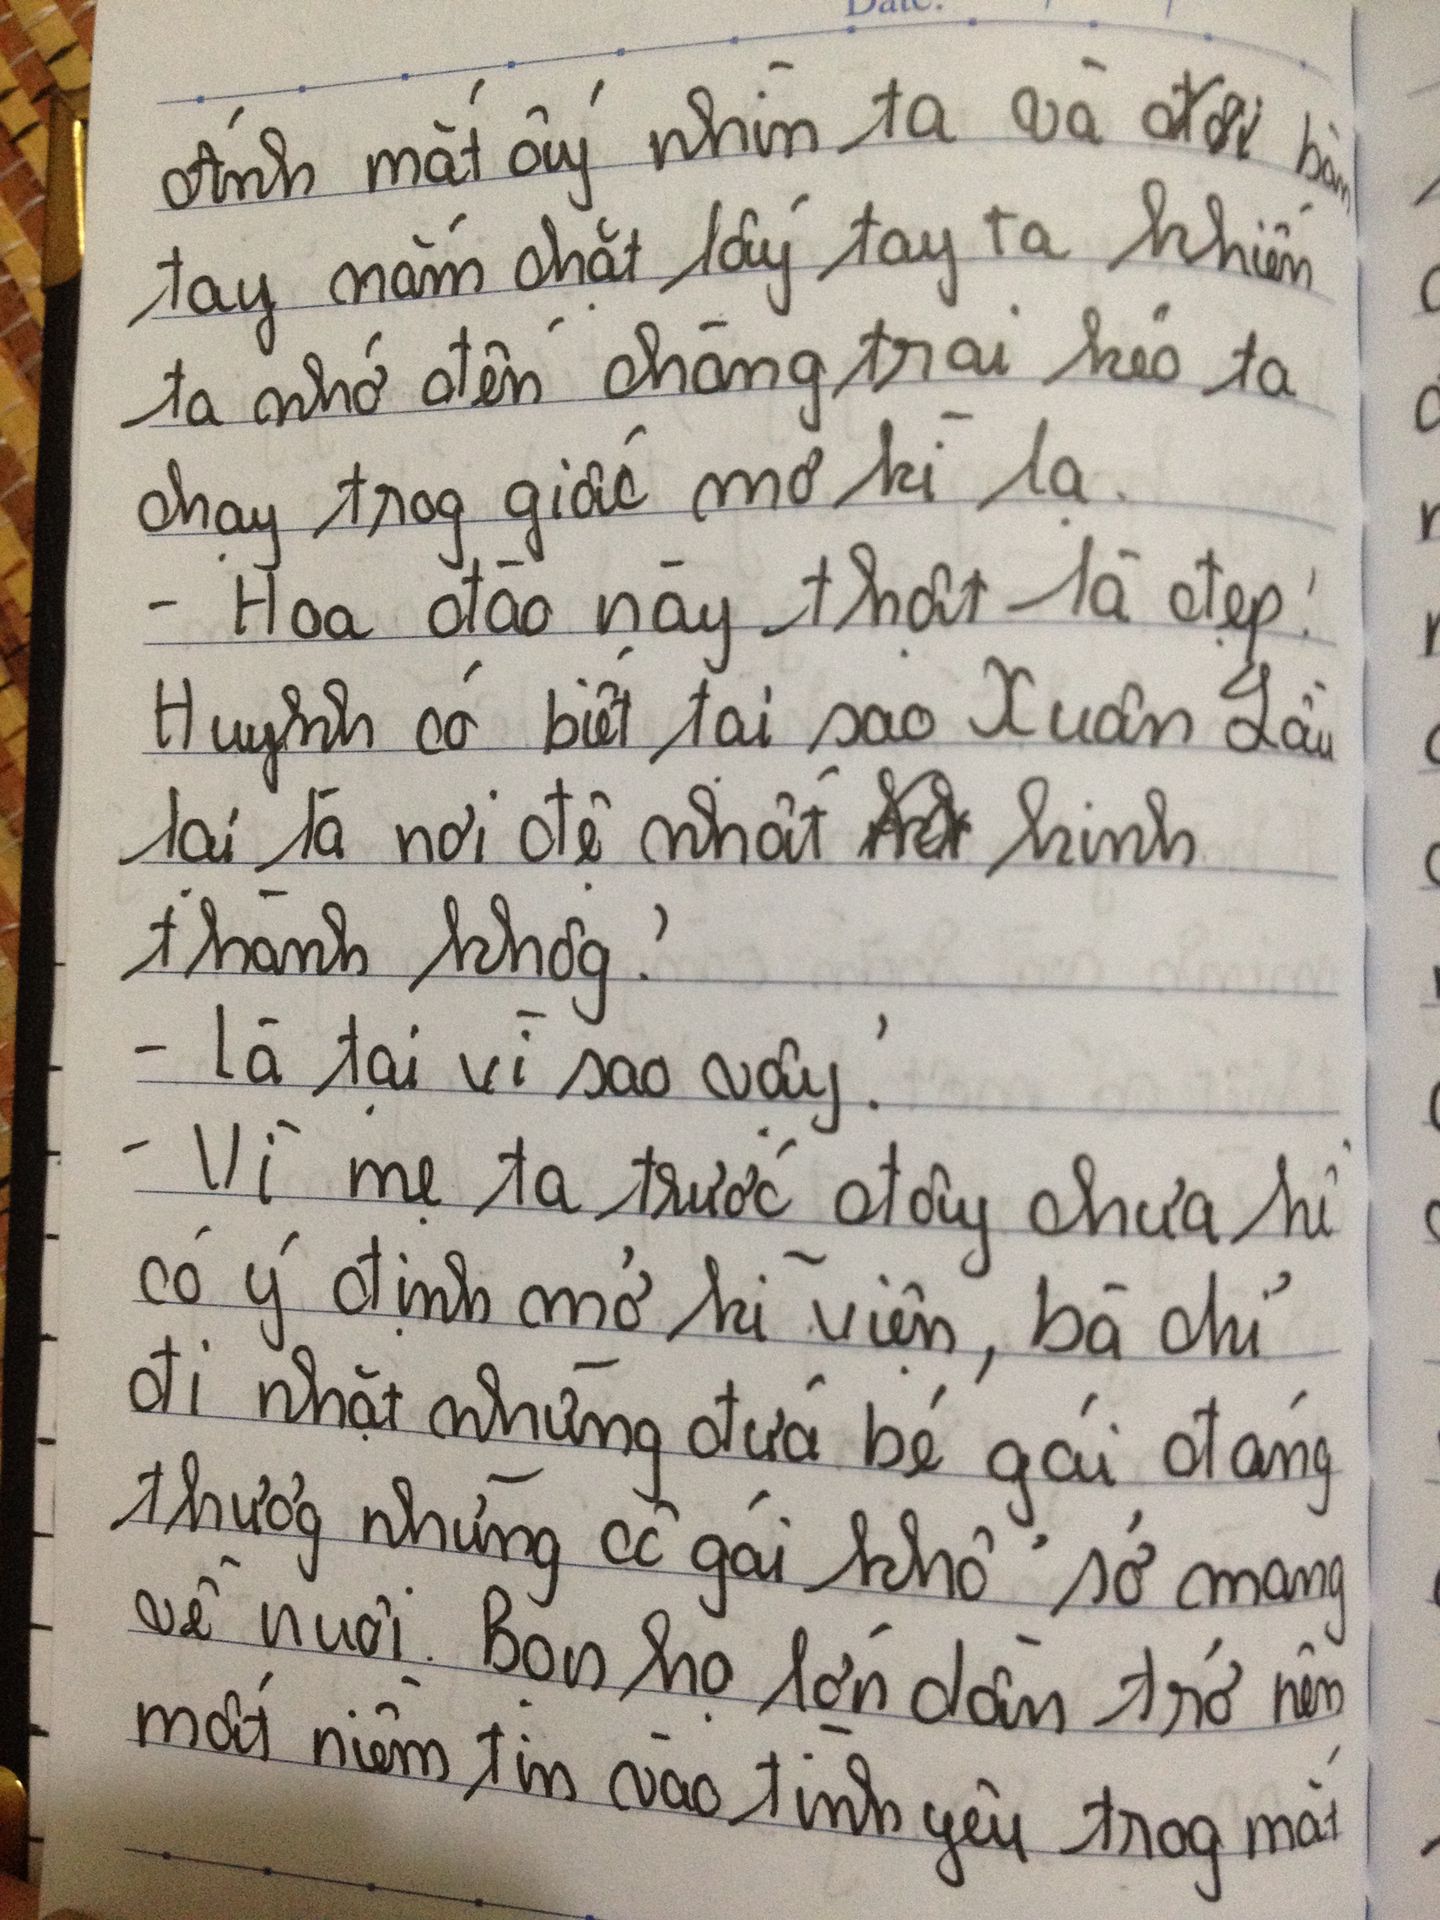 Date:
Ánh mắt ấy nhìn ta và đôi bàn
tay nắm chặt lấy tay ta khiến
ta nhớ đến chàng trai kéo ta
chạy trog giấc mơ kì lạ.
- Hoa đào này thật là đẹp!
Huynh có biết tại sao Xuân Lâu
lại là nơi đệ nhất kinh
thành khôg?
- Là tại vì sao vậy?
- Vì mẹ ta trước đây chưa hề
có ý định mở kĩ viện, bà chỉ
đi nhặt những đứa bé gái đáng
thươg những cô gái khổ sở mang
về nuôi. Bọn họ lớn dần trở nên
mất niềm tin vào tình yêu trog mắt